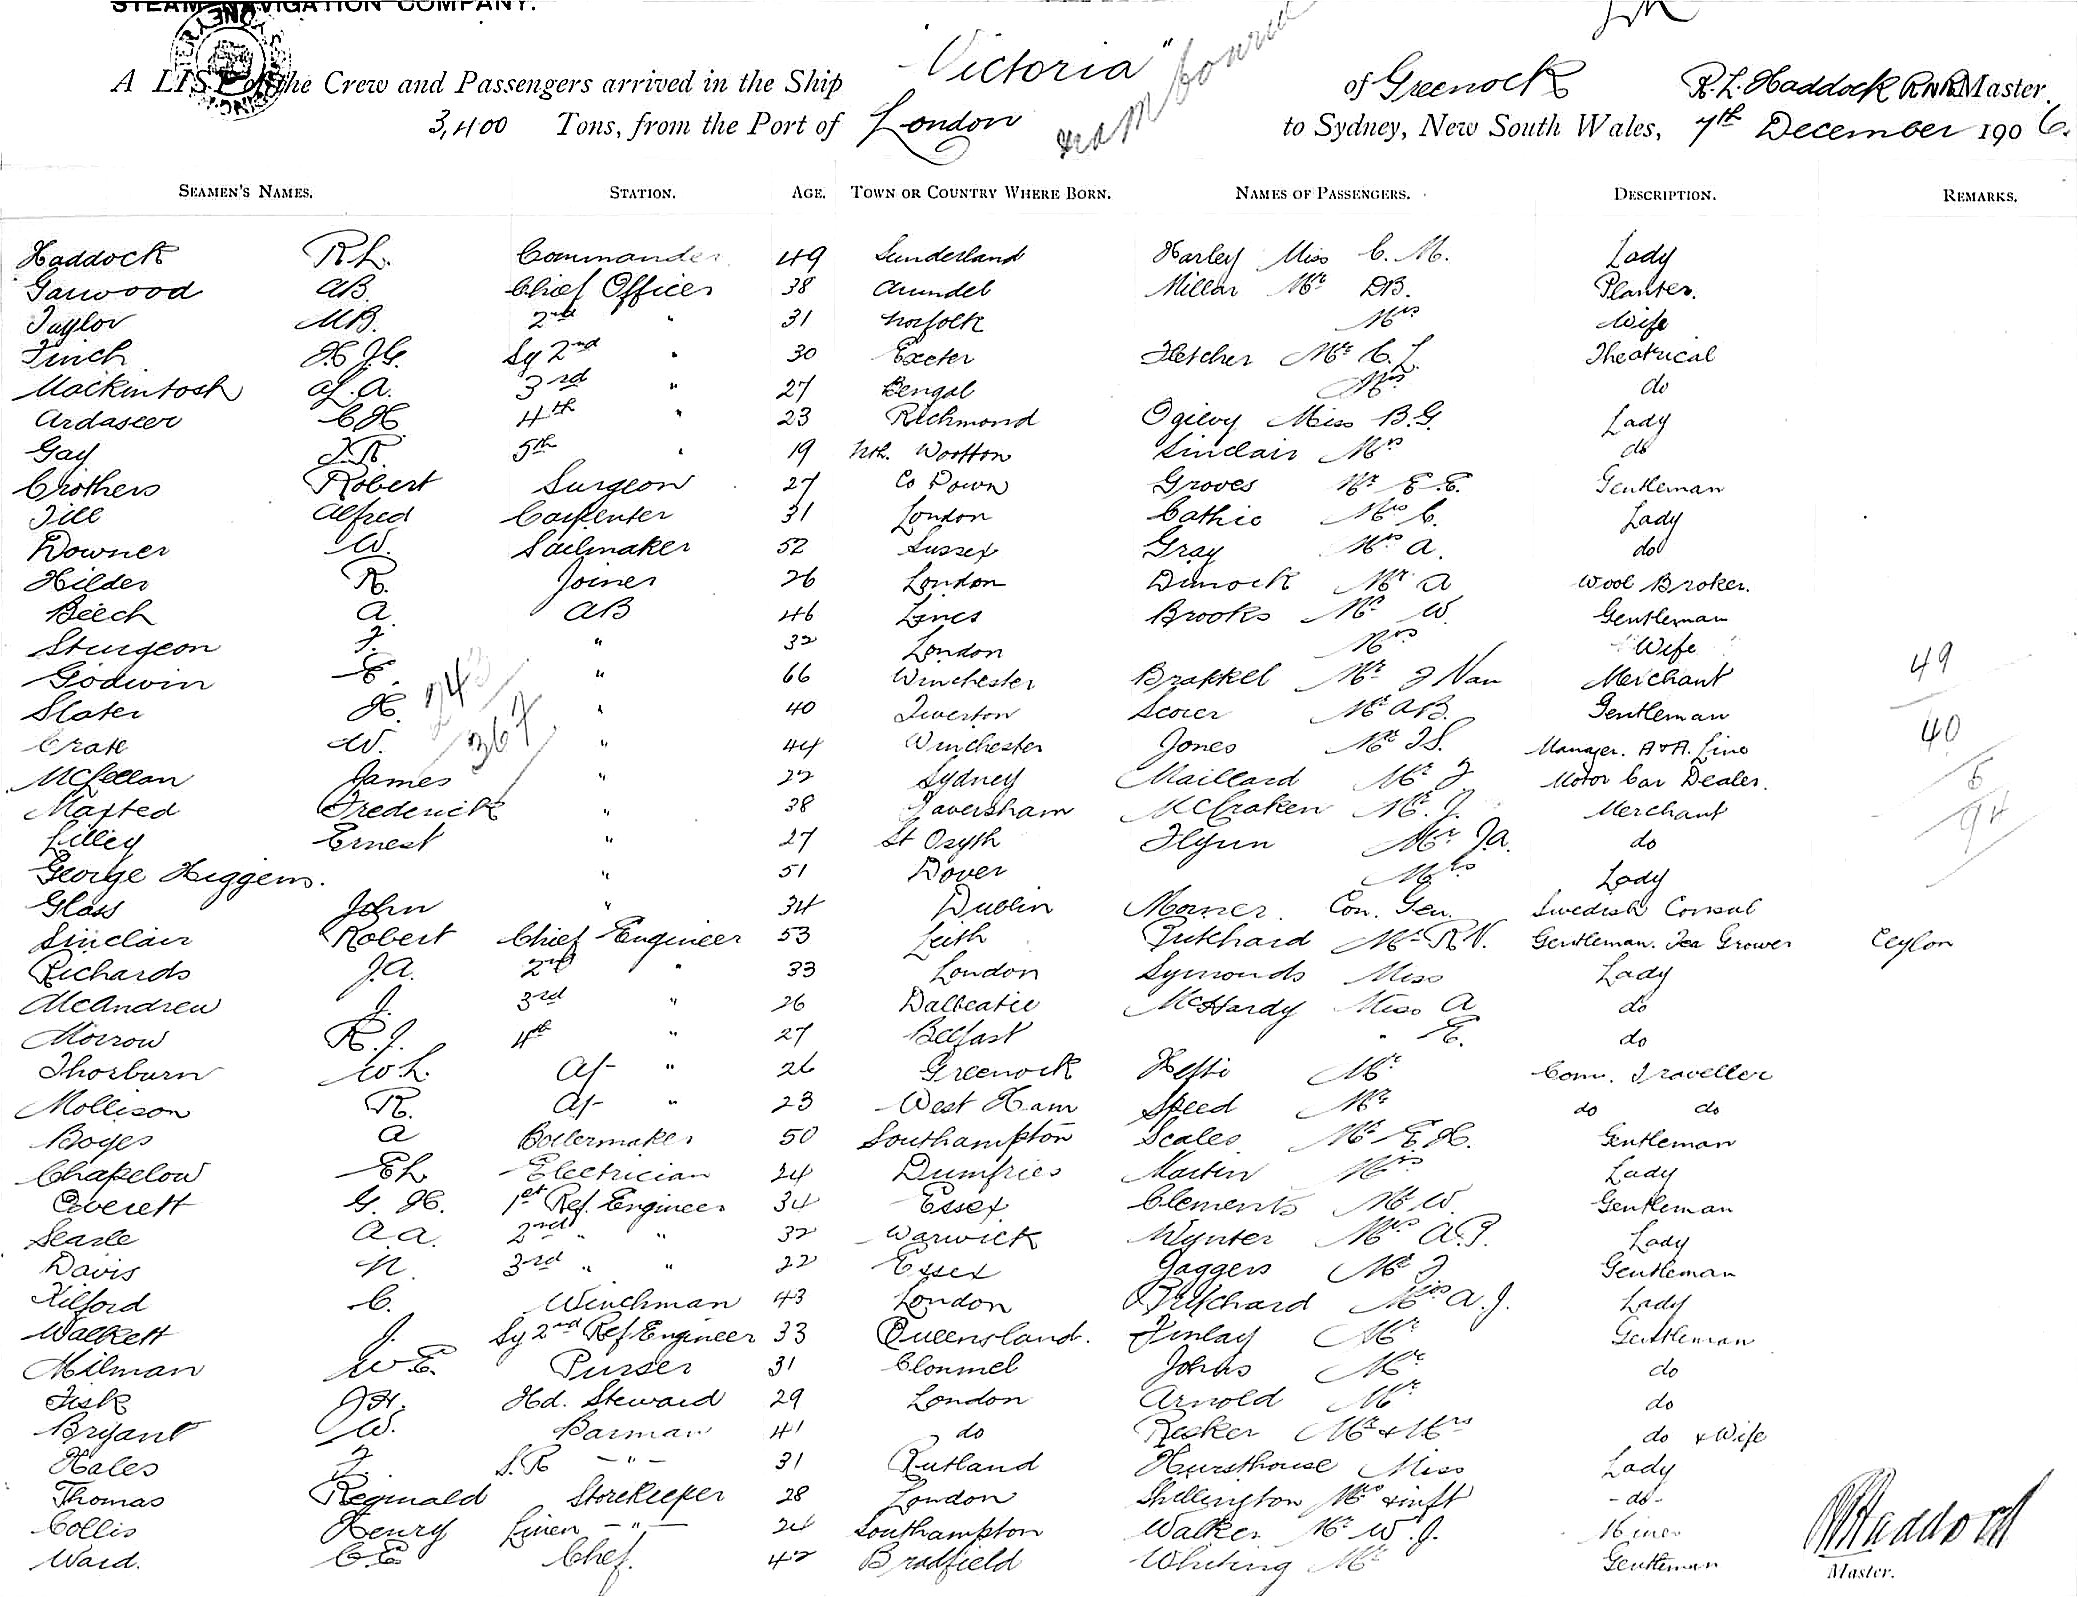 STEAM NAVIGATION COMPANY.
A LIST of the Crew and Passengers arrived in the Ship "Victoria" of Greenock R. L. Haddock RNR Master,
3,400 Tons, from the Port of London to Sydney, New South Wales, 7th December 1906.
SEAMEN'S NAMES. STATION. AGE. TOWN OR COUNTRY WHERE BORN. NAMES OF PASSENGERS. DESCRIPTION. REMARKS.
Haddock R L. Commander 49 Sunderland Harley Miss C. M. Lady
Garwood AB. Chief Officer 38 Arundel Millar Mr DB. Planter.
Taylor MB. 2nd " 31 Norfolk Mrs Wife
Finch H.J.G. Sy 2nd " 30 Exeter Fletcher Mr C. L. Theatrical
Mackintosh A. 3rd " 27 Bengal Mrs do
Ardaseer C H 4th " 23 Richmond Ogilvy Miss B.G. Lady
Gay J.R. 5th " 19 Nth. Wootton Sinclair Mrs do
Crothers Robert Surgeon 27 Co Down Groves Mr E.E. Gentleman
Till Alfred Carpenter 31 London Cathie Mrs C. Lady
Downer W. Sailmaker 52 Sussex Gray Mrs A. do
Hilder R. Joiner 26 London Dimock Mr A Wool Broker.
Beech A. AB 46 Lincs Brooks Mr W. Gentleman
Sturgeon F. " 32 London Mrs Wife
Godwin E. " 66 Winchester Brakkel Mr J Van Merchant 49
Slater H. 243 " 40 Tiverton Scorer Mr A B. Gentleman
Crate W. 367 " 44 Winchester Jones Mr T S. Manager. A & A. Line 40
McLellan James " 22 Sydney Maillard Mr J Motor Car Dealer. 5
Maxted Frederick " 38 Faversham McCraken Mr. J. Merchant 94
Lilley Ernest " 27 St Osyth Flynn Mr J.A. do
George Higgens. " 51 Dover Mrs Lady
Glass John " 34 Dublin Morner. Con. Gen. Swedish Consul
Sinclair Robert Chief Engineer 53 Leith Pritchard Mr R V. Gentleman. Tea Grower Ceylon
Richards J.A. 2nd " 33 London Symonds Miss Lady
McAndrew J. 3rd " 26 Dalbeatie McHardy Miss A do
Morrow R. J. 4th " 27 Belfast " E. do
Thorburn W L. " 26 Greenock Hefti Mr Com. Traveller
Mollison R. " 23 West Ham Speed Mr do do
Boyes A Boilermaker 50 Southampton Scales Mr E. H. Gentleman
Chapelow E L Electrician 24 Dumfries Martin Mrs Lady
Everett G. H. 1st Ref. Engineer 34 Essex Clements Mr W. Gentleman
Searle A A. 2nd " " 32 Warwick Wynter Mrs A.P. Lady
Davis N. 3rd " " 22 Essex Jaggers Mr J Gentleman
Kilford C. Winchman 43 London Pritchard Miss A. J. Lady
Walkett J. Sy 2nd Ref Engineer 33 Queensland. Finlay Mr Gentleman
Milman W E. Purser 31 Clonmel Johns Mr do
Fisk J H. Hd. Steward 29 London Arnold Mr do
Bryant W. Barman 41 do Resker Mr & Mrs do & Wife
Hales F. S.R - " - 31 Rutland Hursthouse Miss Lady
Thomas Reginald Storekeeper 28 London Shillington Mrs & inft - do -
Collis Henry Linen - " - 24 Southampton Walker Mr W. J. Miner
Ward. C.E Chef. 42 Bradfield Whiting Mr Gentleman
RL Haddock
Master.